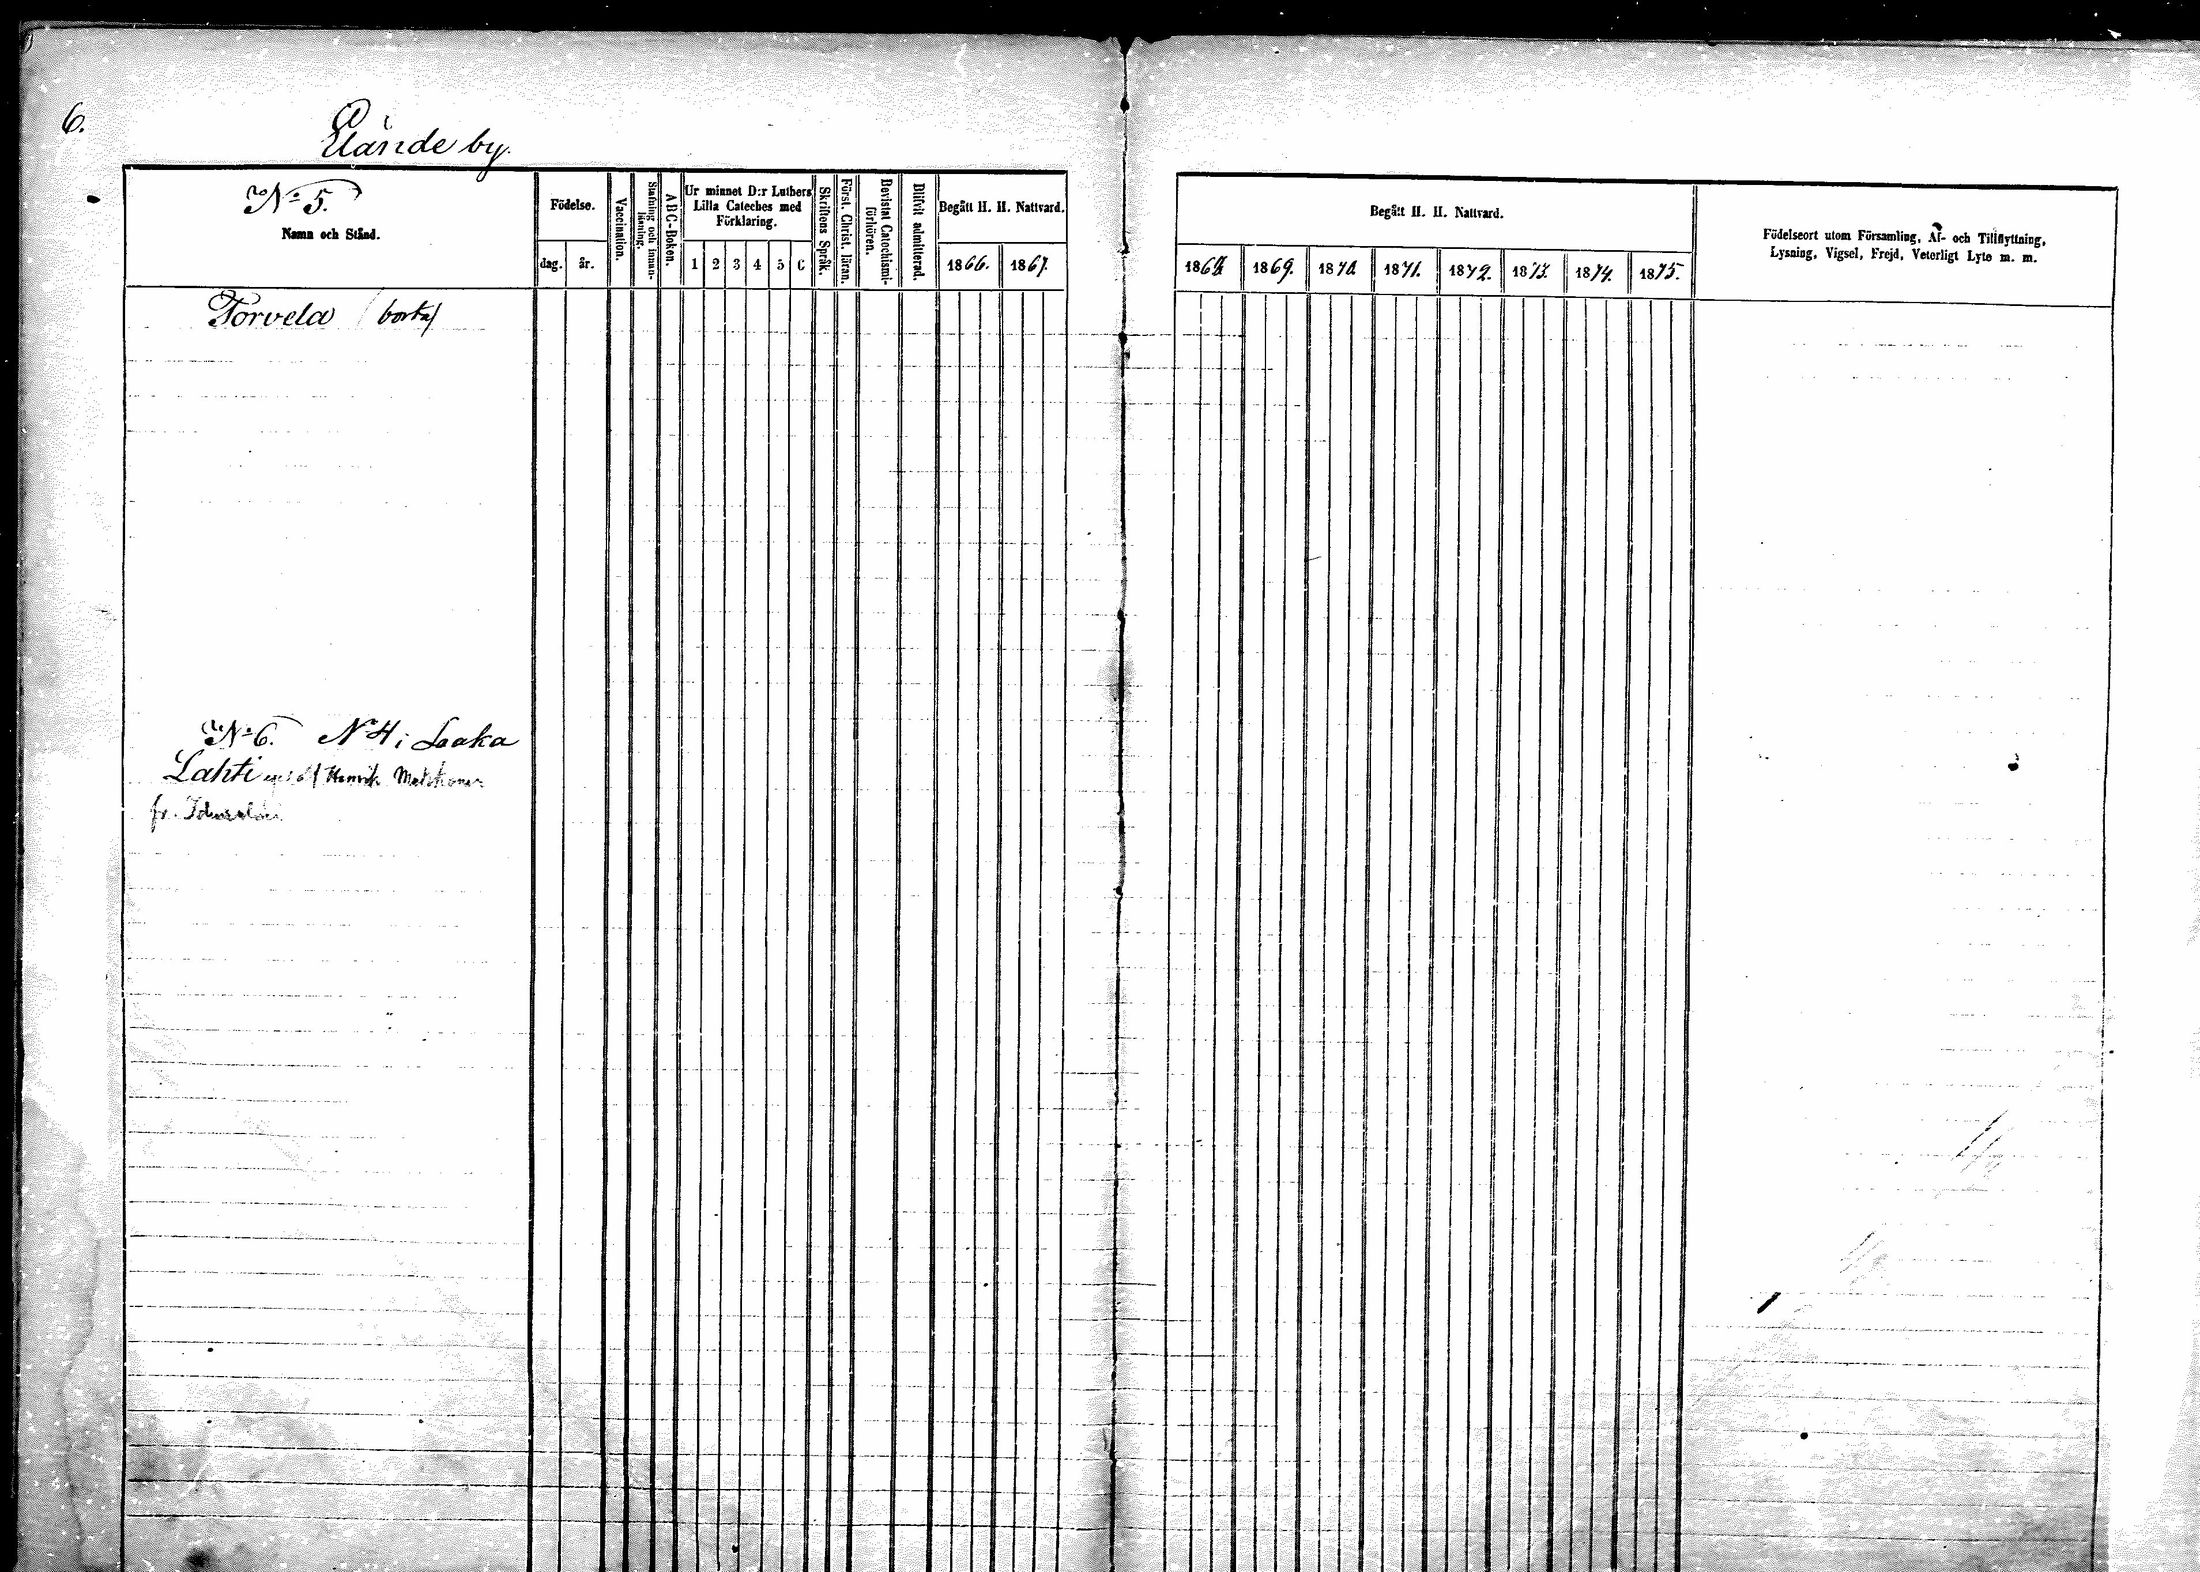 6.
Elände by.
No 5.
Namn och Stånd.
Födelse.
dag. år.
Vaccination.
Stafning och innan-
läsning.
ABC-Boken.
Ur minnet D:r Luthers
Lilla Cateches med
Förklaring.
1 2 3 4 5 6
Skriftens Språk.
Först. Christ. läran.
Bevistat Catechismi-
förhören.
Blifvit admitterad.
Begått H. H. Nattvard.
1866. 1867.
Begått H. H. Nattvard.
1868. 1869. 1870. 1871. 1872. 1873. 1874. 1875.
Födelseort utom Församling, Af- och Tillflyttning,
Lysning, Vigsel, Frejd, Veterligt Lyte m. m.
Torvela (borta)
No 6. No 4 i Laaka
Lahti Henrik
fr.